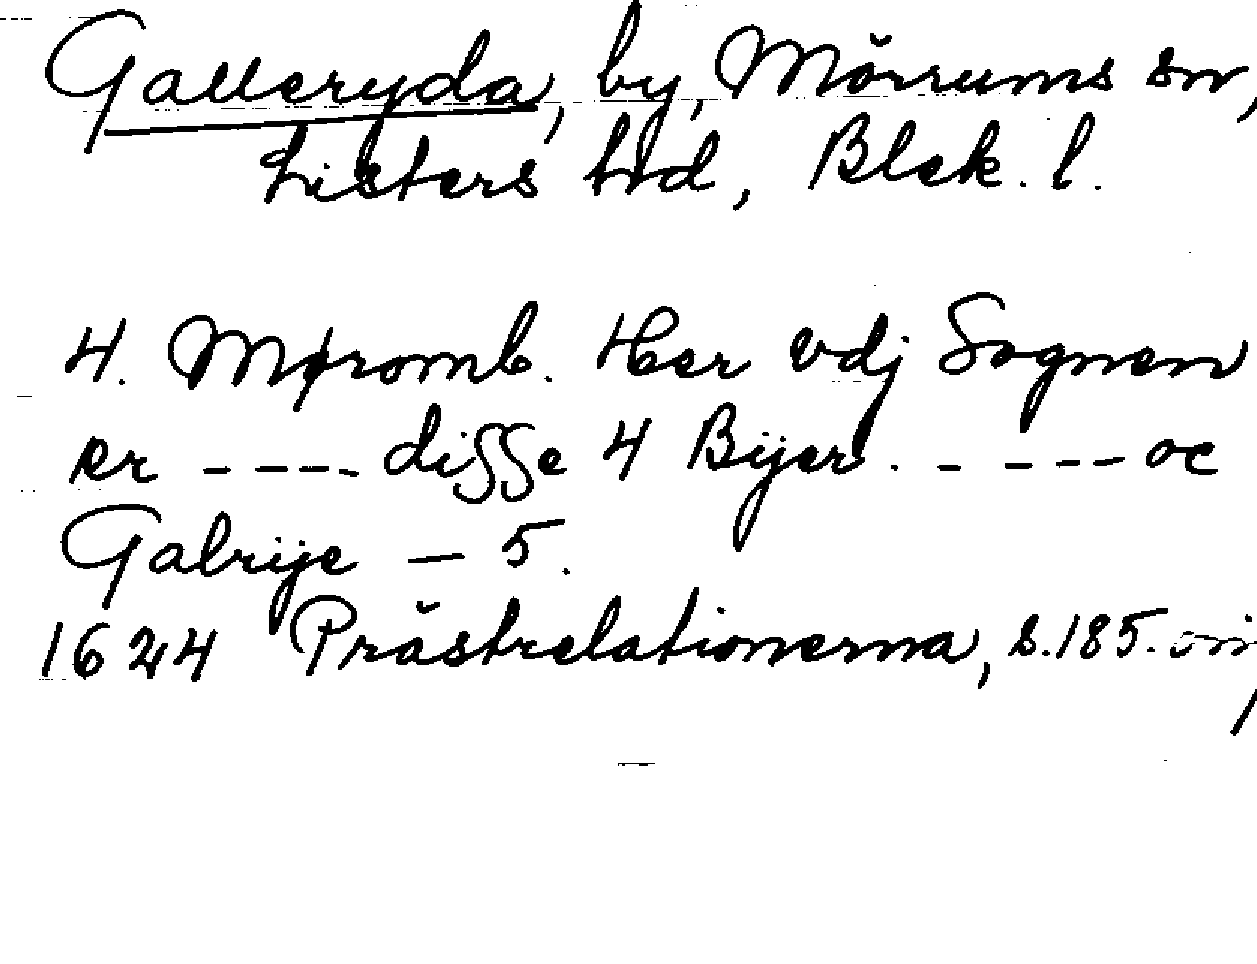 Galleryda, by, Mörrums sn,
Listers hd, Blek. l.
4. Møromb. Her vdj Sognen
er ---- disse 4 Bijer. - --- oc
Galrije - 5.
1624 Prästrelationerna, s. 185.